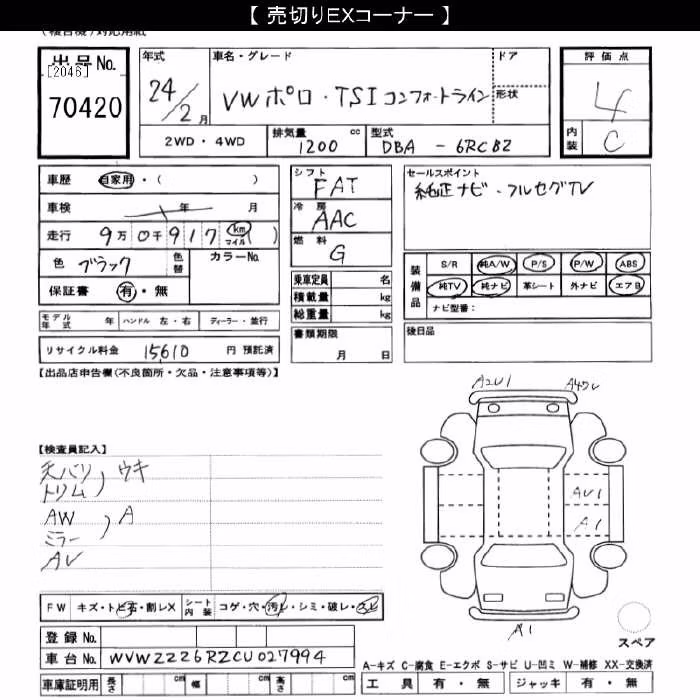 【 売切りEXコーナー 】
(複合機)対応用紙
出品No.
[2046]
70420
年式
24/2月
車名・グレード
VWポロ・TSIコンフォートライン
ドア
形状
評価点
4
内装
C
2WD・4WD
排気量
1200 cc
型式
DBA - 6RCBZ
車歴 自家用・( )
車検 年 月
走行 9万0千917 km マイル )
色 ブラック
色替
カラーNo.
保証書 有・無
シフト
FAT
冷房
AAC
燃料
G
乗車定員 名
積載量 kg
総重量 kg
セールスポイント
純正ナビ・フルセグTV
装備品
S/R 純A/W P/S P/W ABS
純TV 純ナビ 革シート 外ナビ エアB
ナビ型番:
モデル年式 年 ハンドル 左・右 ディーラー・並行
書類期限
月 日
後日品
リサイクル料金 15610 円 預託済
【出品店申告欄(不良箇所・欠品・注意事項等)】
A2U1
【検査員記入】
天バリ
トリム ) ウキ
AW
ミラー ) A
AU
AU1
A1
A1
スペア
FW キズ・トビ石・割レX
シート内装 コゲ・穴・汚レ・シミ・破レ・スレ
登録No.
車台No. WVWZZZ6RZCU027994
車庫証明用 長さ cm 幅 cm 高さ cm
A-キズ C-腐食 E-エクボ S-サビ U-凹ミ W-補修 XX-交換済
工具 有・無 ジャッキ 有・無